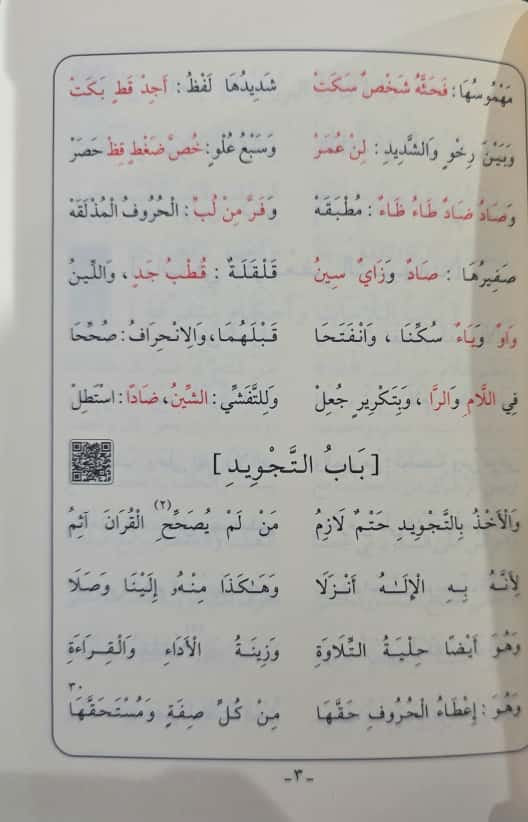 مَهْمُوسُهَا: فَحَثَّهُ شَخْصٌ سَكَتْ شَدِيدُهَا لَفْظُ: أَجِدْ قَطٍ بَكَتْ
وَبَيْنَ رِخْوٍ وَالشَّدِيدِ: لِنْ عُمَرْ وَسَبْعُ عُلْوٍ: خُصَّ ضَغْطٍ قِظْ حَصَرْ
وَصَادُ ضَادٌ طَاءُ ظَاءٌ: مُطْبَقَهْ وَفَرَّ مِنْ لُبِّ: الْحُرُوفُ الْمُذْلَقَهْ
صَفِيرُهَا: صَادٌ وَزَايٌ سِينُ قَلْقَلَةٌ: قُطْبُ جَدٍ، وَاللِّينُ
وَاوٌ وَيَاءٌ سُكِّنَا، وَانْفَتَحَا قَبْلَهُمَا، وَالِانْحِرَافُ: صُحِّحَا
فِي اللَّامِ وَالرَّا، وَبِتَكْرِيرٍ جُعِلْ وَلِلتَّفَشِّي: الشِّينُ، ضَادًا: اسْتَطِلْ
[بَابُ التَّجْوِيدِ]
وَالْأَخْذُ بِالتَّجْوِيدِ حَتْمٌ لَازِمُ مَنْ لَمْ يُصَحِّحِ (٢) الْقُرَانَ آثِمُ
لِأَنَّهُ بِهِ الْإِلَٰهُ أَنْزَلَا وَهَٰكَذَا مِنْهُ إِلَيْنَا وَصَلَا
وَهُوَ أَيْضًا حِلْيَةُ التِّلَاوَةِ وَزِينَةُ الْأَدَاءِ وَالْقِرَاءَةِ
وَهُوَ: إِعْطَاءُ الْحُرُوفِ حَقَّهَا مِنْ كُلِّ صِفَةٍ وَمُسْتَحَقَّهَا ٣٠
-٣-